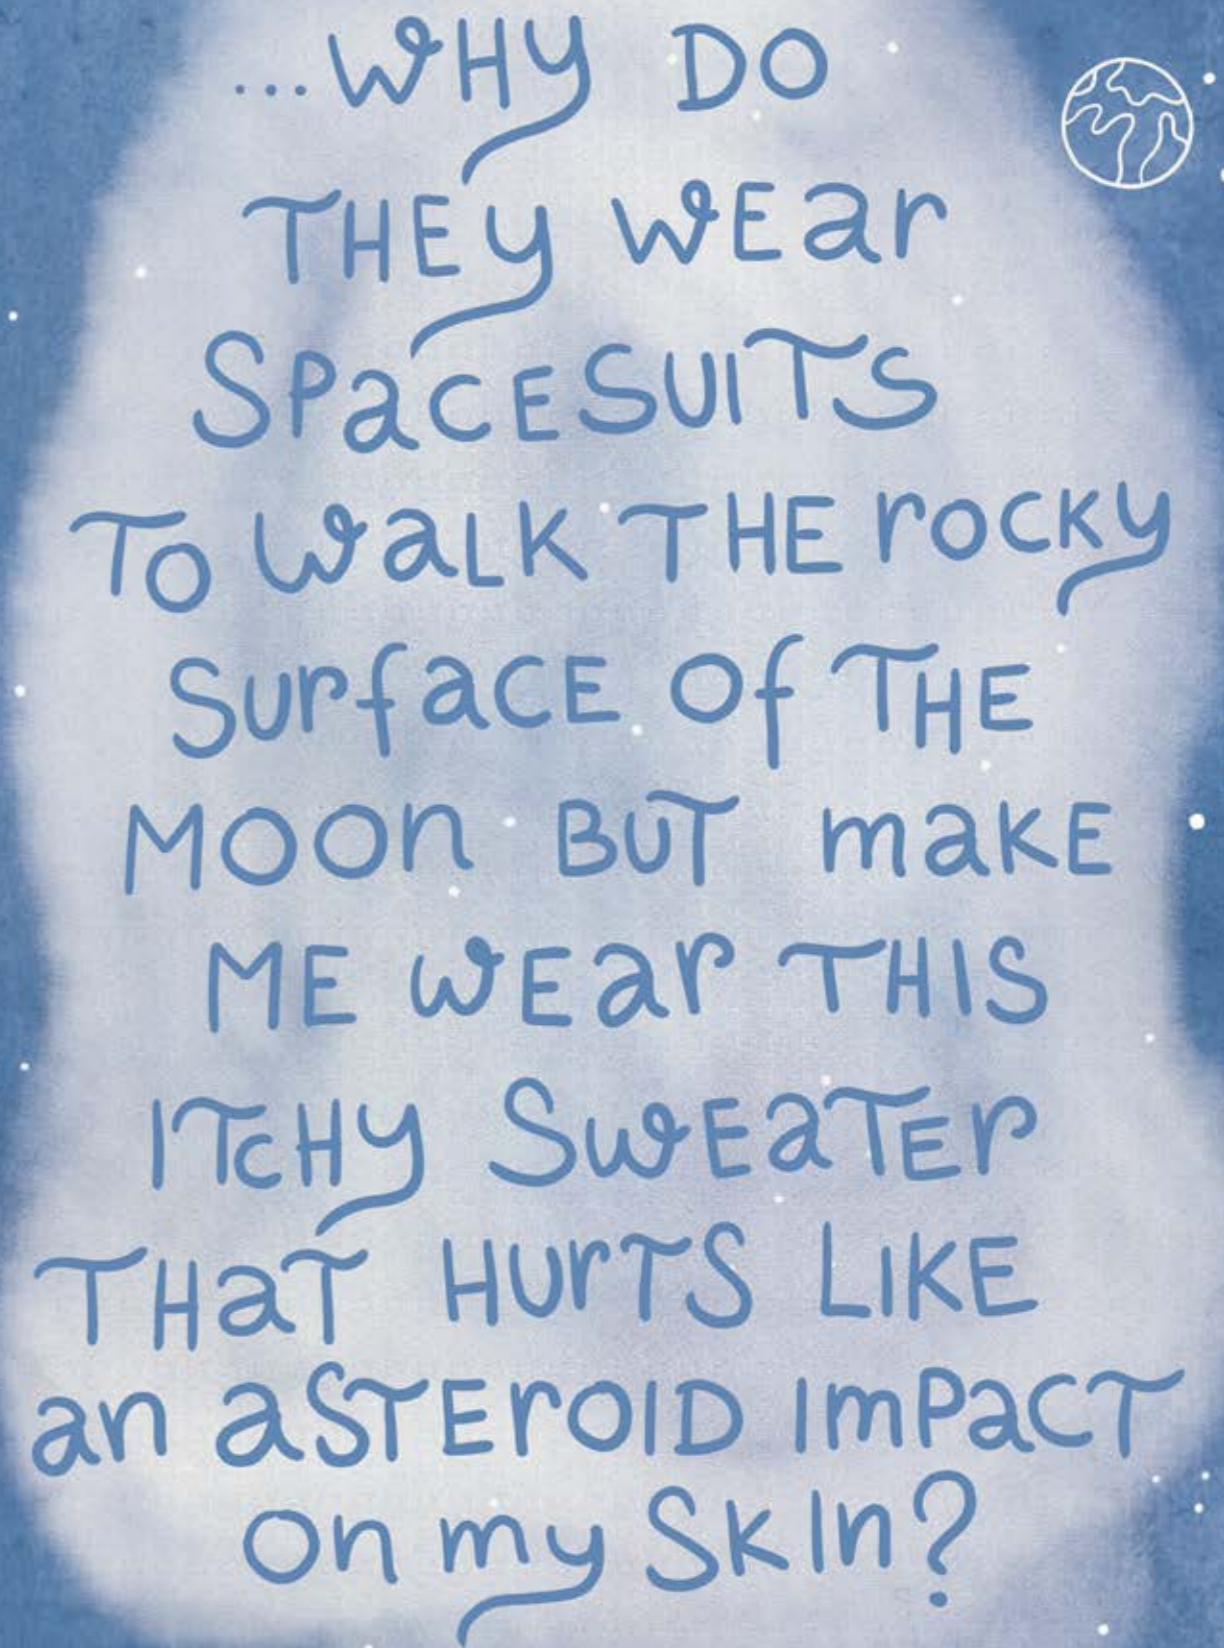 ...WHY DO
THEY WEar
SPaCESUITS
TO WaLK THE rOCKY
SurfaCE Of THE
MOOn BUT maKE
ME WEar THIS
ITCHY SWEaTEr
THaT HUrTS LIKE
an aSTErOID ImPaCT
On my SKIn?